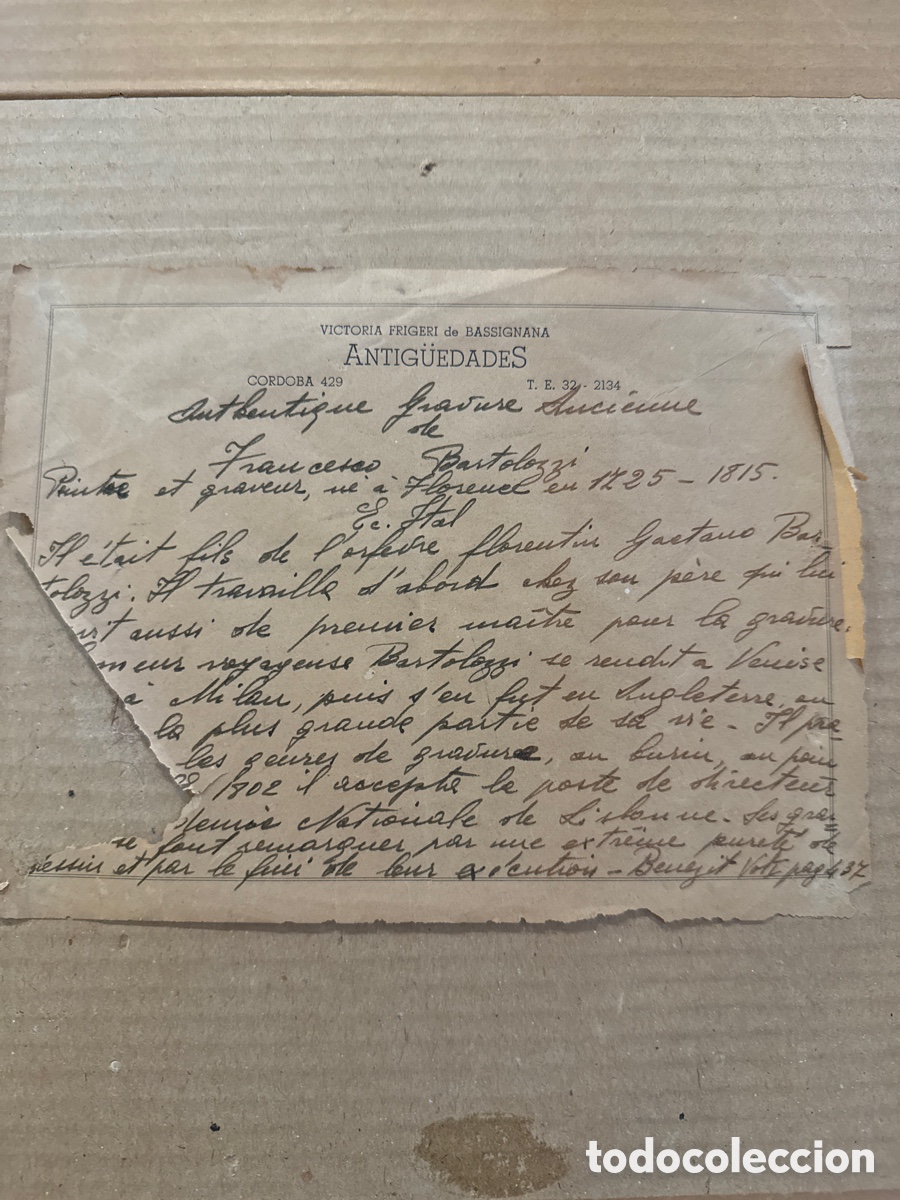 VICTORIA FRIGERI de BASSIGNANA
ANTIGÜEDADES
CORDOBA 429 T. E. 32 - 2134
Authentique Gravure Ancienne
de
Francesco Bartolozzi
Peintre et graveur, né à Florence en 1725 - 1815.
Ec. Ital
Il était fils de l'orfèvre florentin Gaetano Bar-
tolozzi. Il travailla d'abord chez son père qui lui
aussi de premier maître pour la gravure.
meur voyageuse Bartolozzi se rendit a Venise
à Milan, puis s'en fut en Angleterre, ou
la plus grande partie de sa vie - Il
les genres de gravure, au burin, au
1802 il accepta le poste de directeur
démie Nationale de Lisbonne. Ses gra-
se font remarquer par une extrême pureté de
dessin et par le fini de leur exécution - Benezit pag 437
todocoleccion